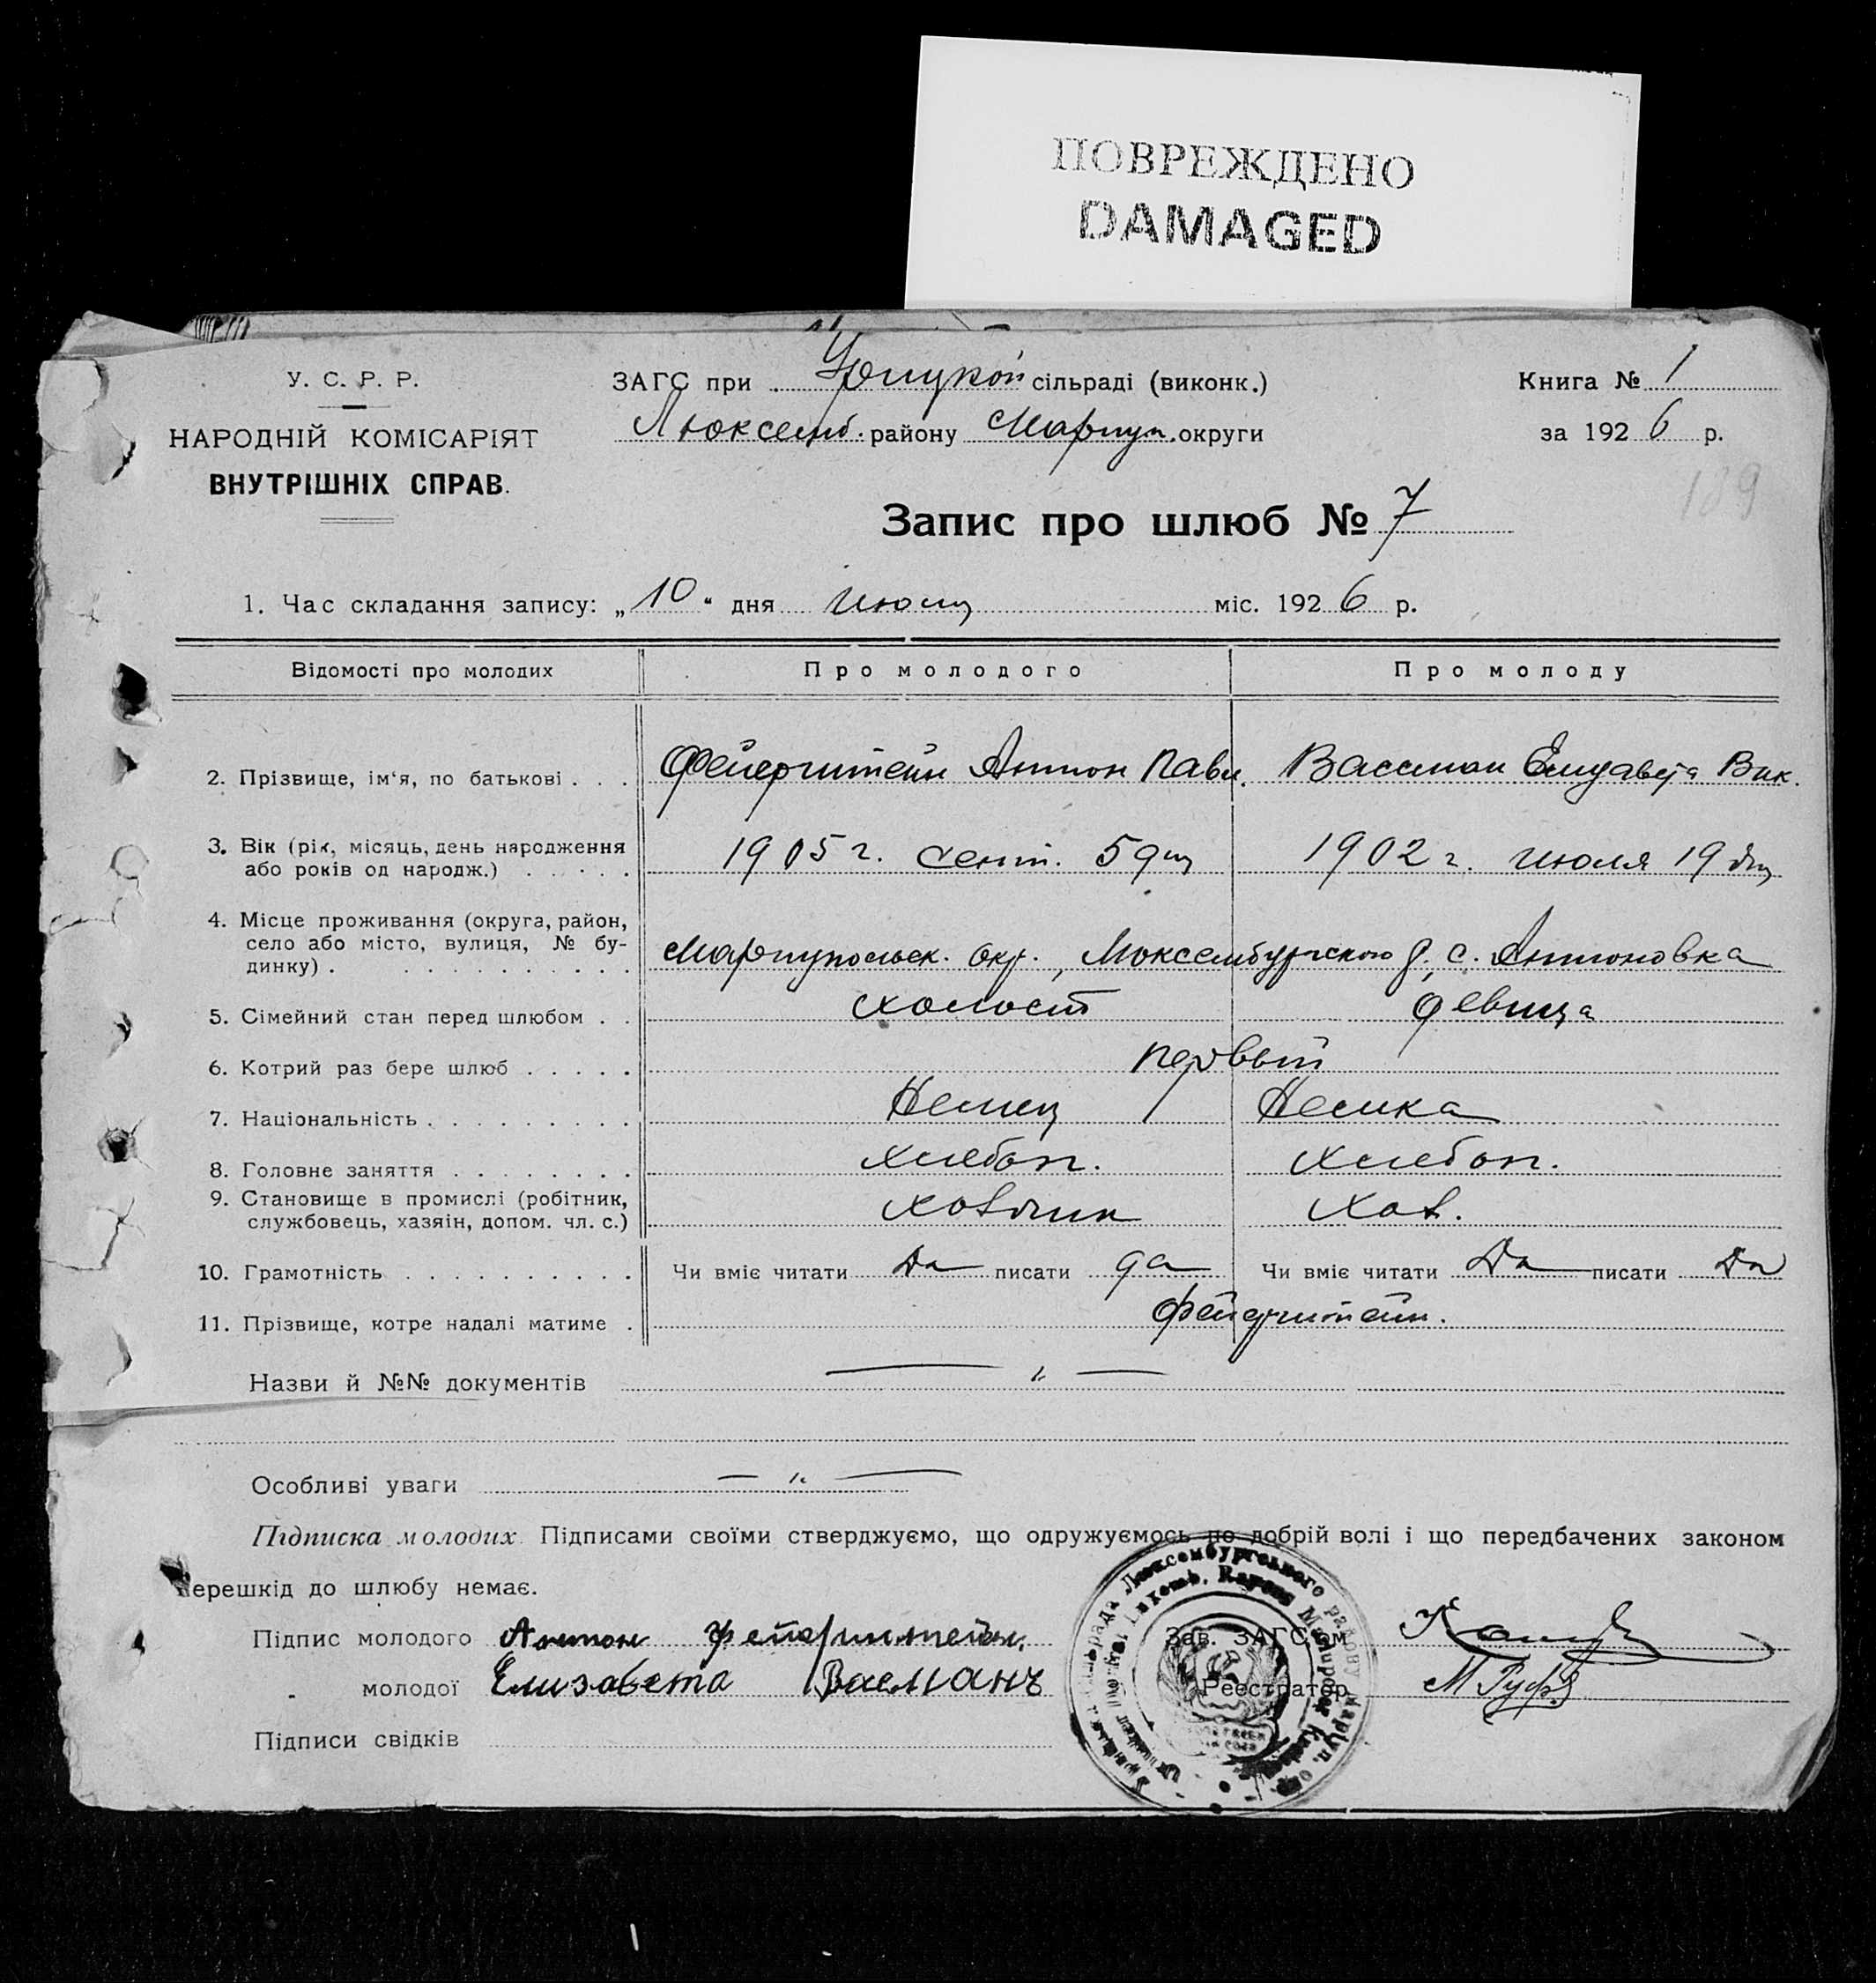 ПОВРЕЖДЕНО
DAMAGED
У. С. Р. Р.
НАРОДНІЙ КОМІСАРІЯТ
ВНУТРІШНІХ СПРАВ.
ЗАГС при сільраді (виконк.)
Люксемб. району Мариуп. округи
Книга № 1
за 1926 р.
189
Запис про шлюб № 7
1. Час складання запису: „10“ дня міс. 1926 р.
Відомості про молодих Про молодого Про молоду
2. Прізвище, ім'я, по батькові . . . Фейерштейн Антон Павл. Вассман Елизавета Вик.
3. Вік (рік, місяць, день народження
або років од народж.) . . . . . 1905 г. сент. 5 дня 1902 г. июля 19 дня
4. Місце проживання (округа, район,
село або місто, вулиця, № бу-
динку) . . . . . . . . . . . Мариупольск. окр., Люксембургского р. с. Антоновка
5. Сімейний стан перед шлюбом . . холост девица
6. Котрий раз бере шлюб . . . . . первый
7. Національність . . . . . . . . . Немец Немка
8. Головне заняття . . . . . . . . хлебоп. хлебоп.
9. Становище в промислі (робітник,
службовець, хазяін, допом. чл. с.)
10. Грамотність . . . . . . . . . . Чи вміє читати Да писати да Чи вміє читати Да писати Да
11. Прізвище, котре надалі матиме . Фейерштейн.
Назви й №№ документів — „ —
Особливі уваги — „ —
Підписка молодих. Підписами своїми стверджуємо, що одружуємось по добрій волі і що передбачених законом
перешкід до шлюбу немає.
Підпис молодого Антон Фейерштейн.
молодої Елизавета Васманъ
Підписи свідків
Зав. ЗАГС'ом
Реєстратор